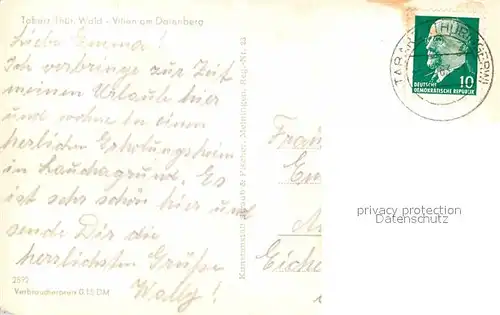 Tabarz Thür. Wald - Villen am Datenberg
Liebe Emma!
Ich verbringe zur Zeit
meinen Urlaub hier
und wohne in einen
herlichen Erholungsheim
in Lauchagrund. Es
ist sehr schön hier und
sende Dir die
herrlichsten Grüße
Wally!
2592
Verbraucherpreis 0,15 DM
Kunstanstalt Straub & Fischer, Meiningen, Reg.-Nr.
TABARZ THÜRINGERW
10
DEUTSCHE
DEMOKRATISCHE REPUBLIK
Eiche
privacy protection
Datenschutz